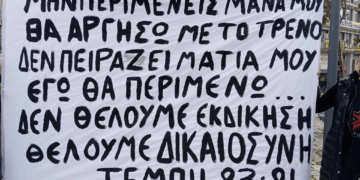 ΜΗΝ ΠΕΡΙΜΕΝΕΙΣ ΜΑΝΑ ΜΟΥ
ΘΑ ΑΡΓΗΣΩ ΜΕ ΤΟ ΤΡΕΝΟ
ΔΕΝ ΠΕΙΡΑΖΕΙ ΜΑΤΙΑ ΜΟΥ
ΕΓΩ ΘΑ ΠΕΡΙΜΕΝΩ...
ΔΕΝ ΘΕΛΟΥΜΕ ΕΚΔΙΚΗΣΗ
ΘΕΛΟΥΜΕ ΔΙΚΑΙΟΣΥΝΗ
ΤΕΜΠΗ